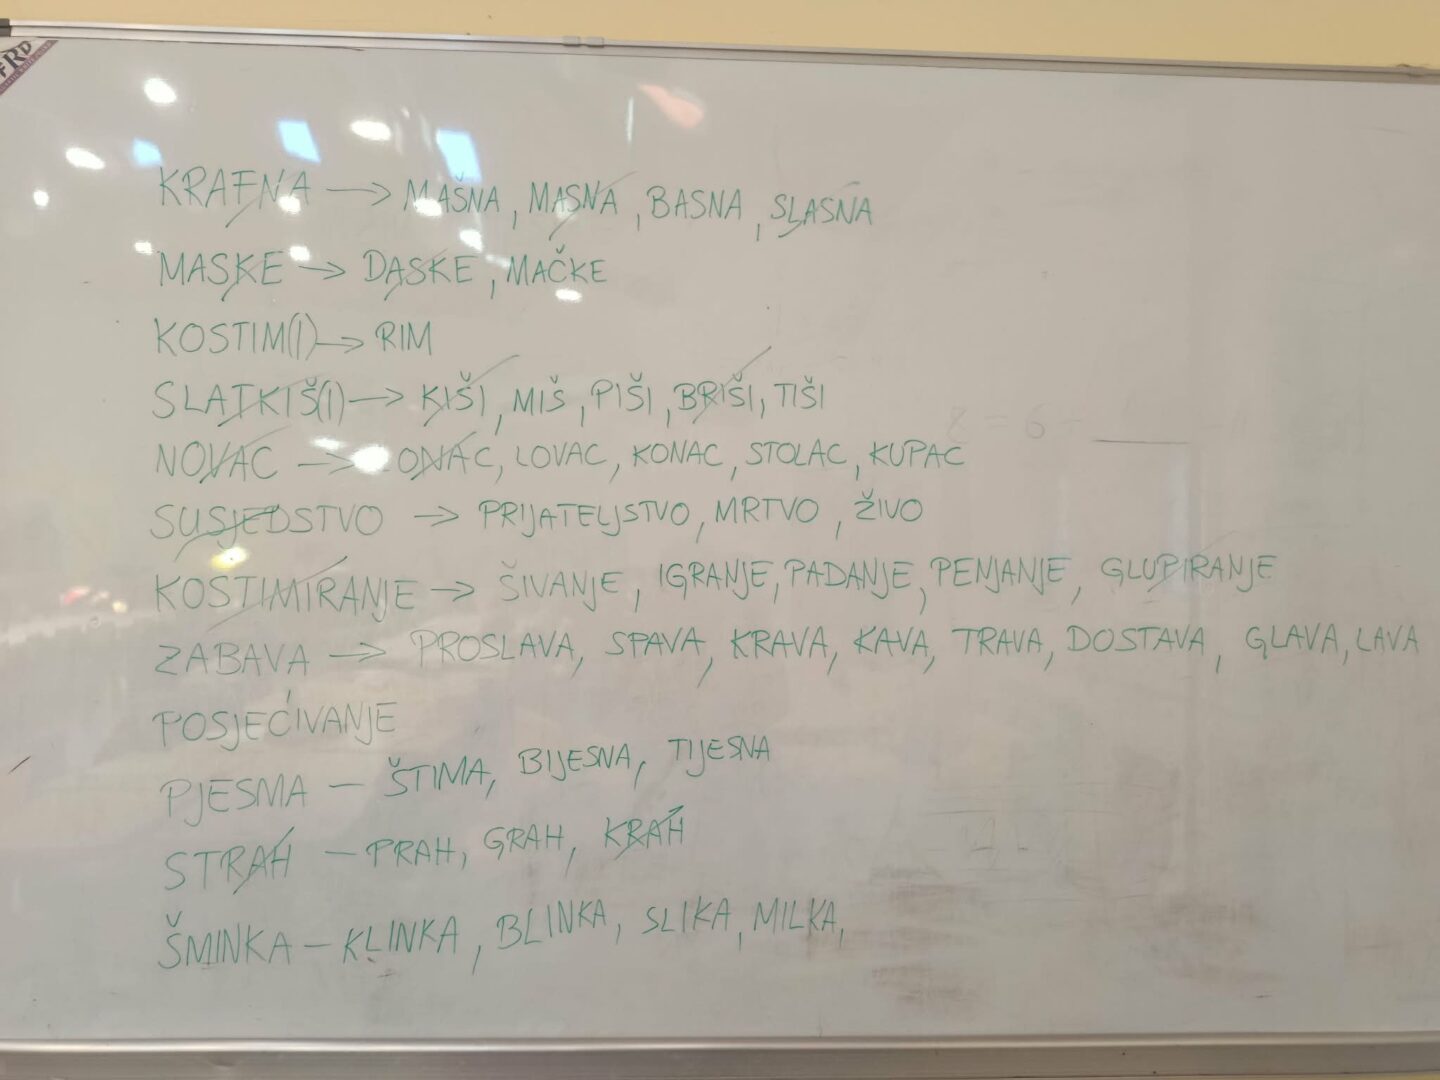 KRAFNA → MAŠNA, MASNA, BASNA, SLASNA
MASKE → DASKE, MAČKE
KOSTIM(I) → RIM
SLATKIŠ(I) → KIŠI, MIŠ, PIŠI, BRIŠI, TIŠI
NOVAC → LONAC, LOVAC, KONAC, STOLAC, KUPAC
SUSJEDSTVO → PRIJATELJSTVO, MRTVO, ŽIVO
KOSTIMIRANJE → ŠIVANJE, IGRANJE, PADANJE, PENJANJE, GLUPIRANJE
ZABAVA → PROSLAVA, SPAVA, KRAVA, KAVA, TRAVA, DOSTAVA, GLAVA, LAVA
POSJEĆIVANJE
PJESMA – ŠTIMA, BIJESNA, TIJESNA
STRAH – PRAH, GRAH, KRAH
ŠMINKA – KLINKA, BLINKA, SLIKA, MILKA,